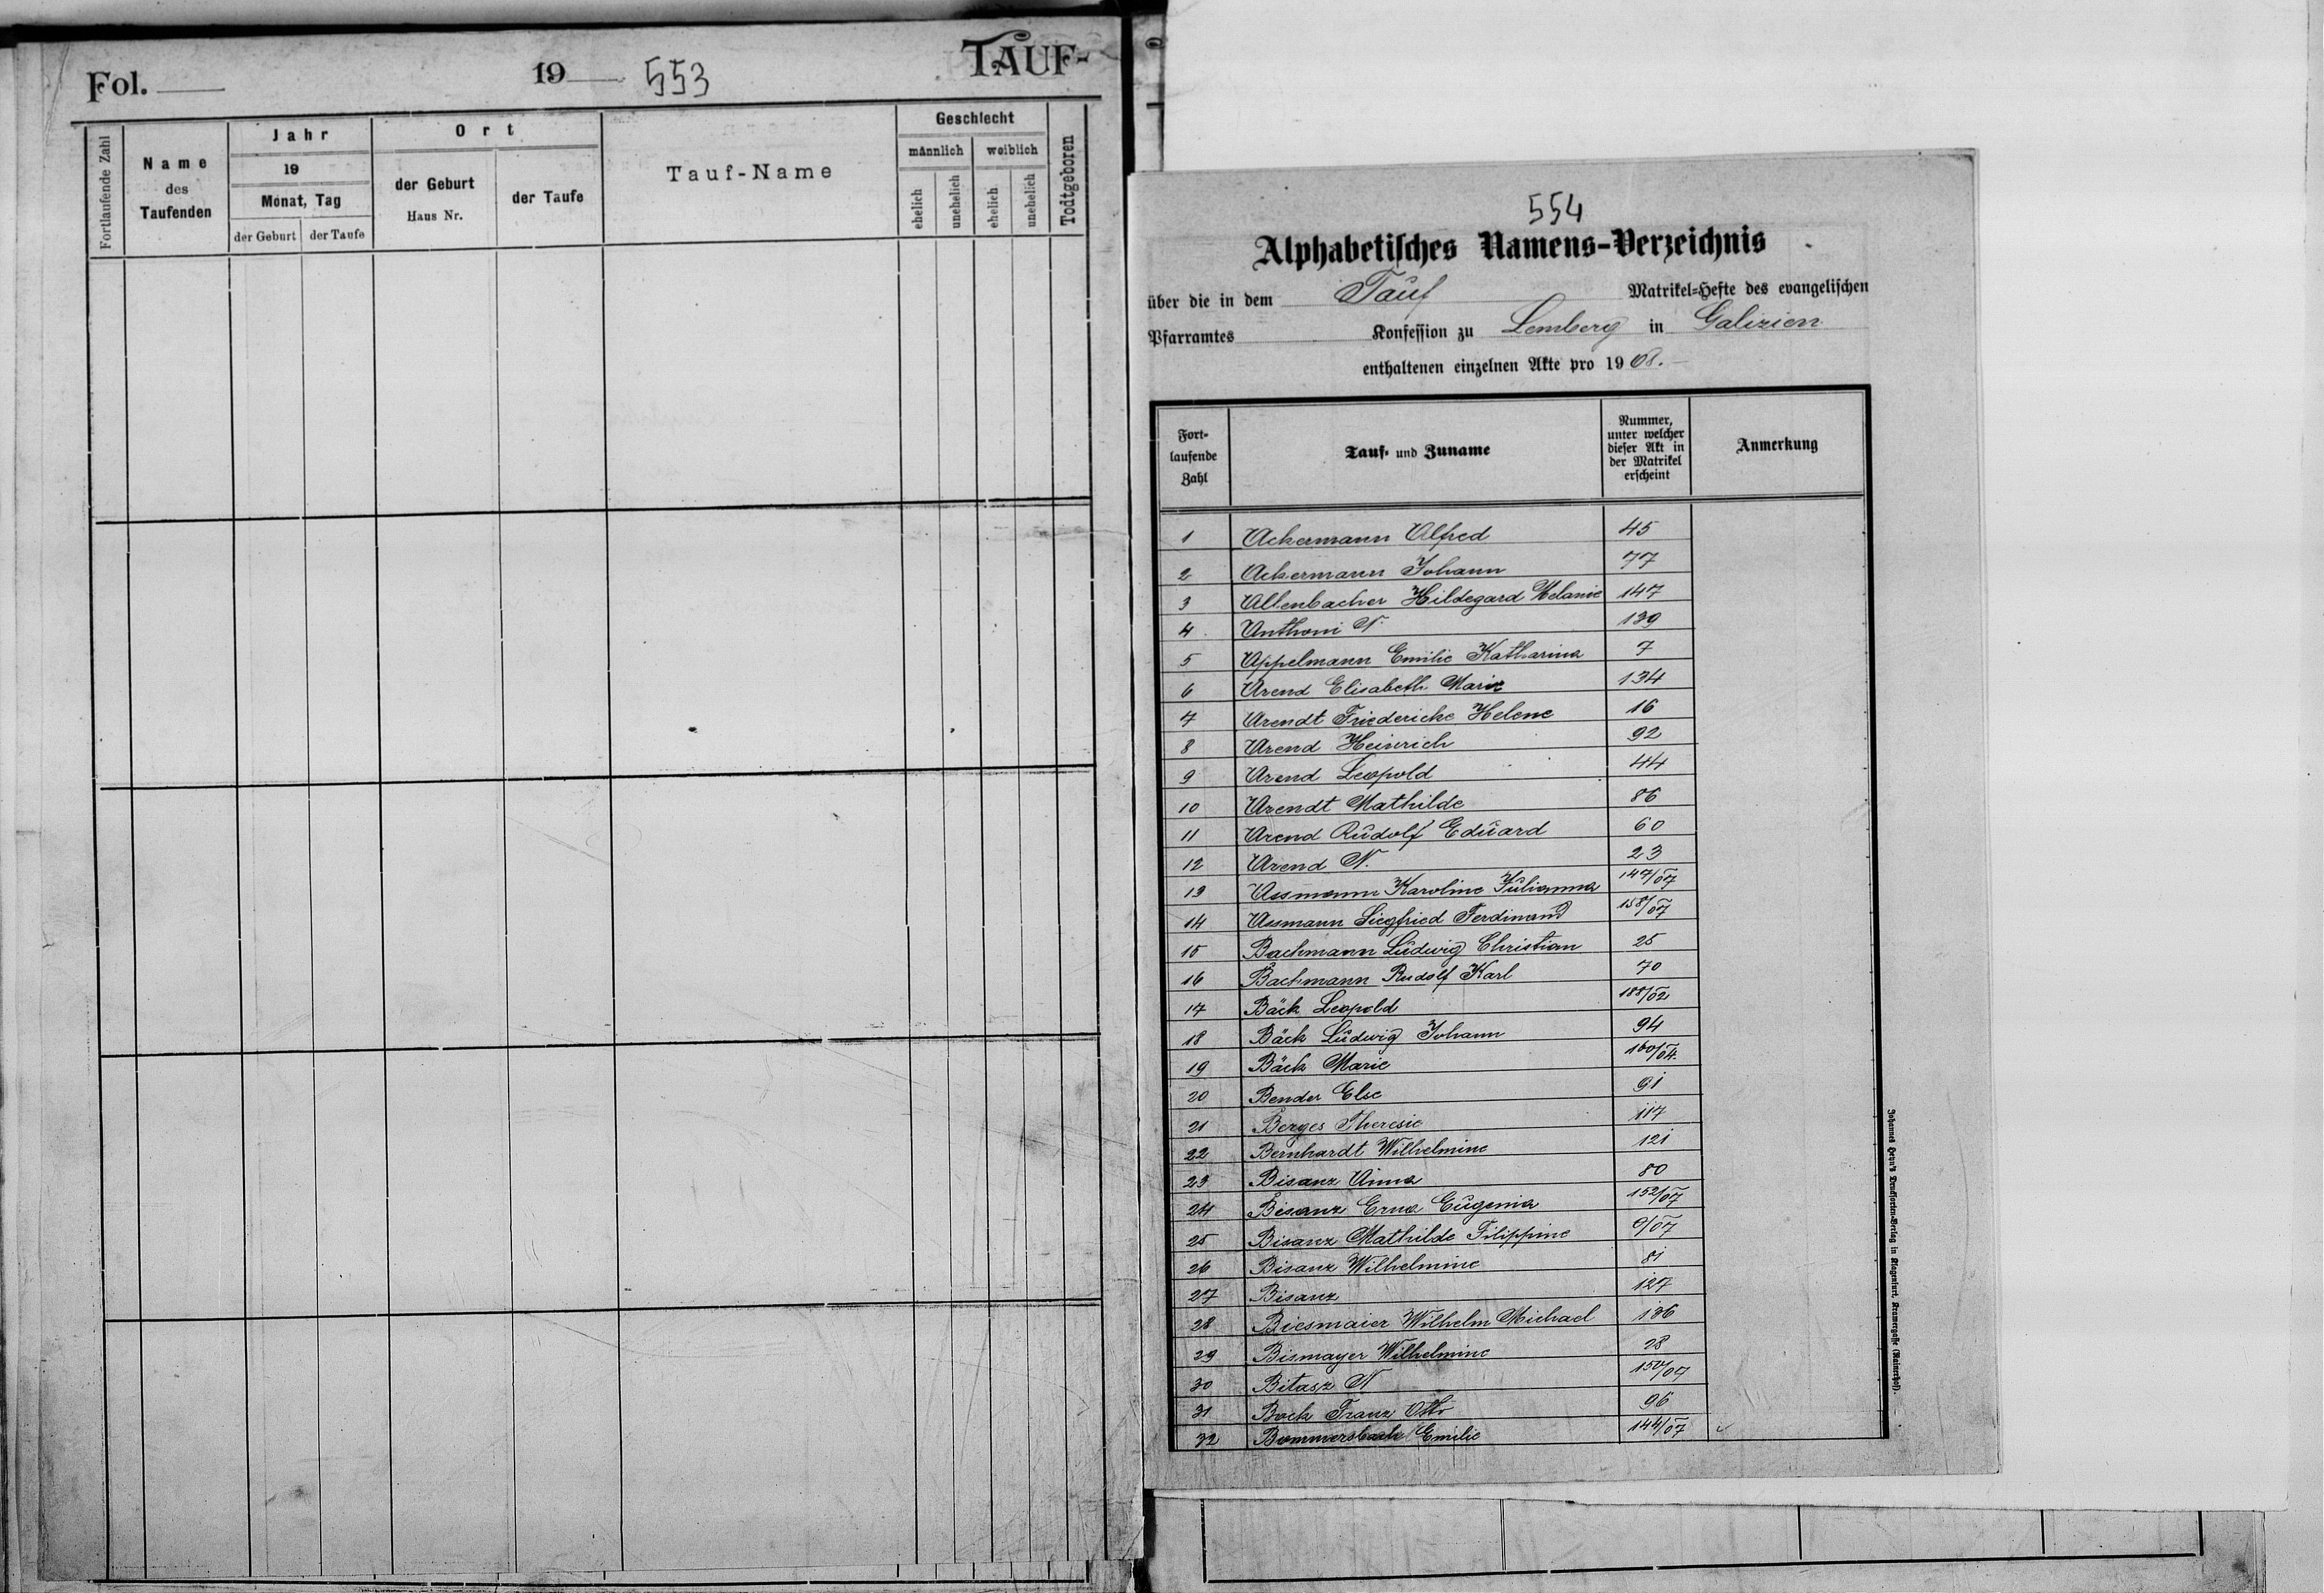 Fol.
19 553
TAUF-
Fortlaufende Zahl
Name
des
Taufenden
Jahr
19
Monat, Tag
der Geburt der Taufe
Ort
der Geburt
Haus Nr.
der Taufe
Tauf-Name
Geschlecht
männlich weiblich
ehelich unehelich ehelich unehelich
Todtgeboren
554
Alphabetisches Namens-Verzeichnis
über die in dem Tauf Matrikel-Hefte des evangelischen
Pfarramtes Konfession zu Lemberg in Galizien
enthaltenen einzelnen Akte pro 1908.
Fort-
laufende
Zahl
Tauf- und Zuname
Nummer,
unter welcher
dieser Akt in
der Matrikel
erscheint
Anmerkung
1 Ackermann Alfred 45
2 Ackermann Johann 77
3 Allenbacher Hildegard Melanie 147
4 Anthoni N. 139
5 Appelmann Emilie Katharina 7
6 Arend Elisabeth Marie 134
7 Arendt Friedericke Helene 16
8 Arend Heinrich 92
9 Arend Leopold 44
10 Arendt Mathilde 86
11 Arend Rudolf Eduard 60
12 Arend N. 23
13 Assmann Karoline Julianna 147/07
14 Assmann Siegfried Ferdinand 158/07
15 Bachmann Ludwig Christian 25
16 Bachmann Rudolf Karl 70
17 Bäck Leopold 188/02
18 Bäck Ludwig Johann 94
19 Bäck Marie 160/04
20 Bender Else 91
21 Berges Theresie 117
22 Bernhardt Wilhelmine 121
23 Bisanz Anna 80
24 Bisanz Erna Eugenia 152/07
25 Bisanz Mathilde Filippine 9/07
26 Bisanz Wilhelmine 81
27 Bisanz 127
28 Biesmaier Wilhelm Michael 136
29 Bismayer Wilhelmine 28
30 Bitasz N 150/07
31 Bock Franz Otto 96
32 Bommersbach Emilie 144/07
Johannes Heyn's Drucksorten-Verlag in Klagenfurt, Kramergasse (Rainerhof).